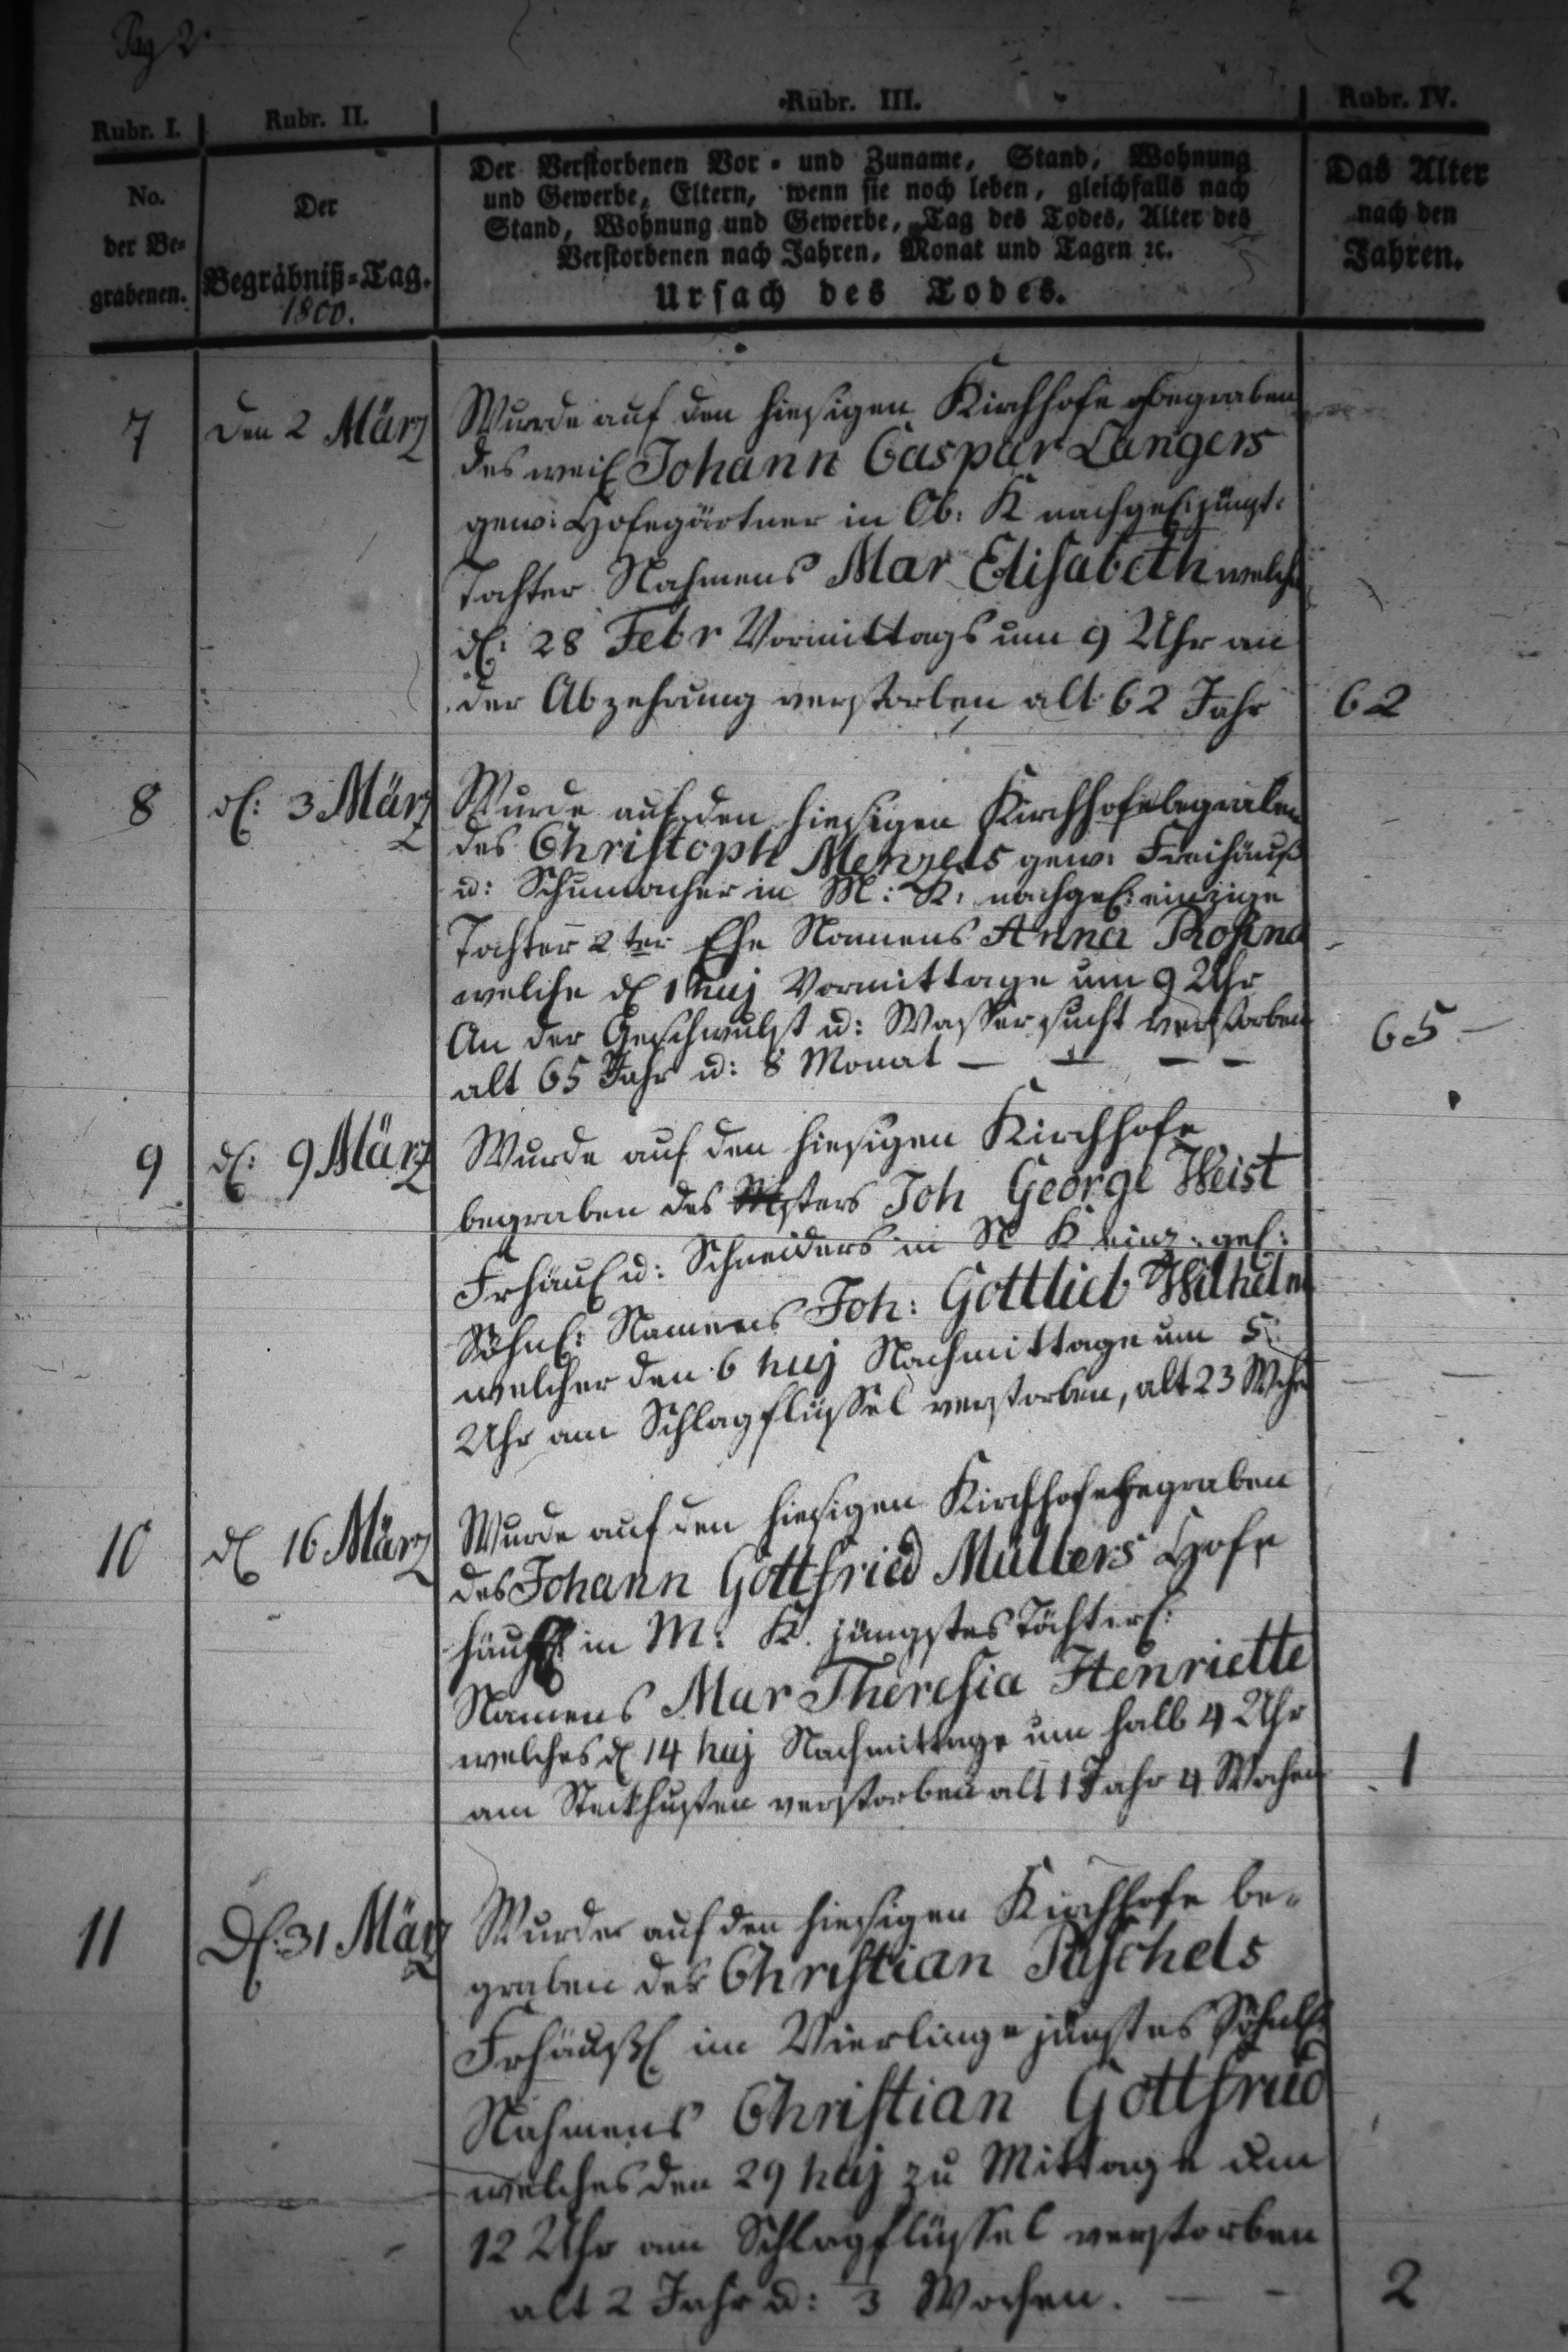 Pag 2.
Rubr. I.
Rubr. II.
Rubr. III.
Rubr. IV.
No.
der Be-
grabenen.
Der
Begräbniß-Tag.
1800.
Der Verstorbenen Vor- und Zuname, Stand, Wohnung
und Gewerbe, Eltern, wenn sie noch leben, gleichfalls nach
Stand, Wohnung und Gewerbe, Tag des Todes, Alter des
Verstorbenen nach Jahren, Monat und Tagen ꝛc.
Ursach des Todes.
Das Alter
nach den
Jahren.
7
den 2 März
Wurde auf den hiesigen Kirchhofe begraben
des weil Johann Caspar Langers
gew: Hofegärtner in Ob: K nachgel: jüngst:
Tochter Nahmens Mar Elisabeth welche
d: 28 Febr Vormittags um 9 Uhr an
der Abzehrung verstorben alt 62 Jahr
62
8
d: 3 März
Wurde auf den hiesigen Kirchhofe begraben
des Christoph Menzels gew: Freihäusl
u: Schumacher in M: K: nachgel: einzige
Tochter 2ter Ehe Namens Anna Rosina
welche d 1 huj Vormittage um 9 Uhr
An der Geschwulst u: Wassersucht verstorben
alt 65 Jahr u: 8 Monat — — — —
65 —
9
d: 9 März
Wurde auf den hiesigen Kirchhofe
begraben des Msters Joh George Weist
Frhäusl u: Schneiders in N K einz: gel:
Söhnl: Namens Joh: Gottlieb Wilhelm
welcher den 6 huj Nachmittage um 5
Uhr am Schlagflüssel verstorben, alt 23 Wch
10
d 16 März
Wurde auf den hiesigen Kirchhofe begraben
des Johann Gottfried Müllers Hofe
häusl in M: K. jüngstes Töchterl:
Namens Mar Theresia Henriette
welches d 14 huj Nachmittage um halb 4 Uhr
am Steckhusten verstorben alt 1 Jahr 4 Wochen
1
11
D: 31 März
Wurde auf den hiesigen Kirchhofe be-
graben des Christian Püschels
Frhäusl im Vierlinge jüngstes Söhnl:
Nahmens Christian Gottfried
welches den 29 huj zu Mittage um
12 Uhr am Schlagflüssel verstorben
alt 2 Jahr u: 3 Wochen. — —
2